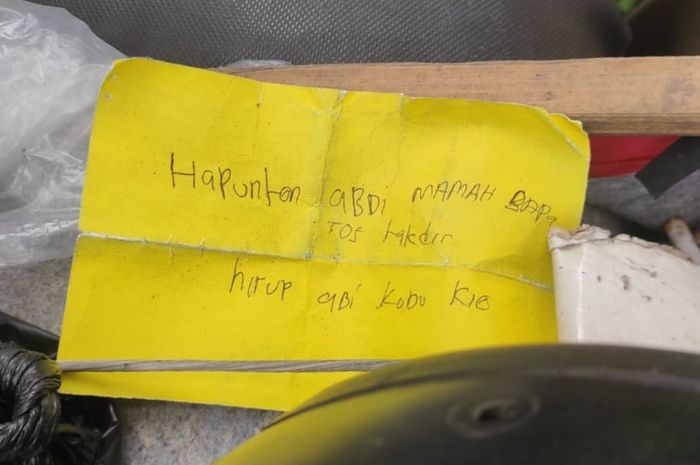 Hapunten aBDi MAMAH BAPA
TOS takdir
hirup abi kudu kie